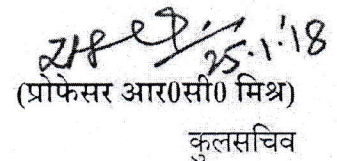 25.1.18
(प्रोफेसर आर0सी0 मिश्र)
कुलसचिव